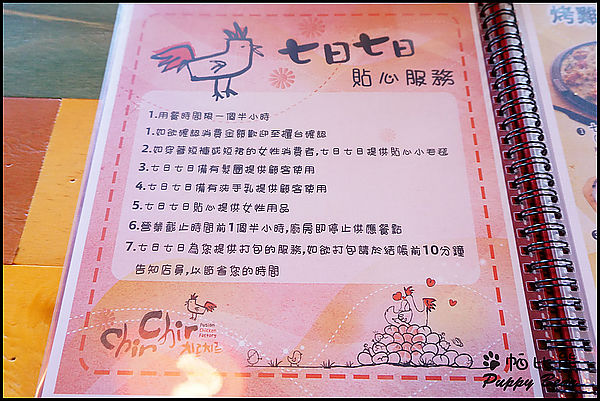 七日七日
貼心服務
1.用餐時間限一個半小時
1.如欲確認消費金額歡迎至櫃台確認
2.如穿著短褲或短裙的女性消費者,七日七日提供貼心小毛毯
3.七日七日備有髮圈提供顧客使用
4.七日七日備有洗手乳提供顧客使用
5.七日七日貼心提供女性用品
6.營業截止時間前1個半小時,廚房即停止供應餐點
7.七日七日為您提供打包的服務,如欲打包請於結帳前10分鐘
告知店員,以節省您的時間
Chir Chir
Fusion
Chicken
Factory
치르치르
烤雞
帕
Puppy